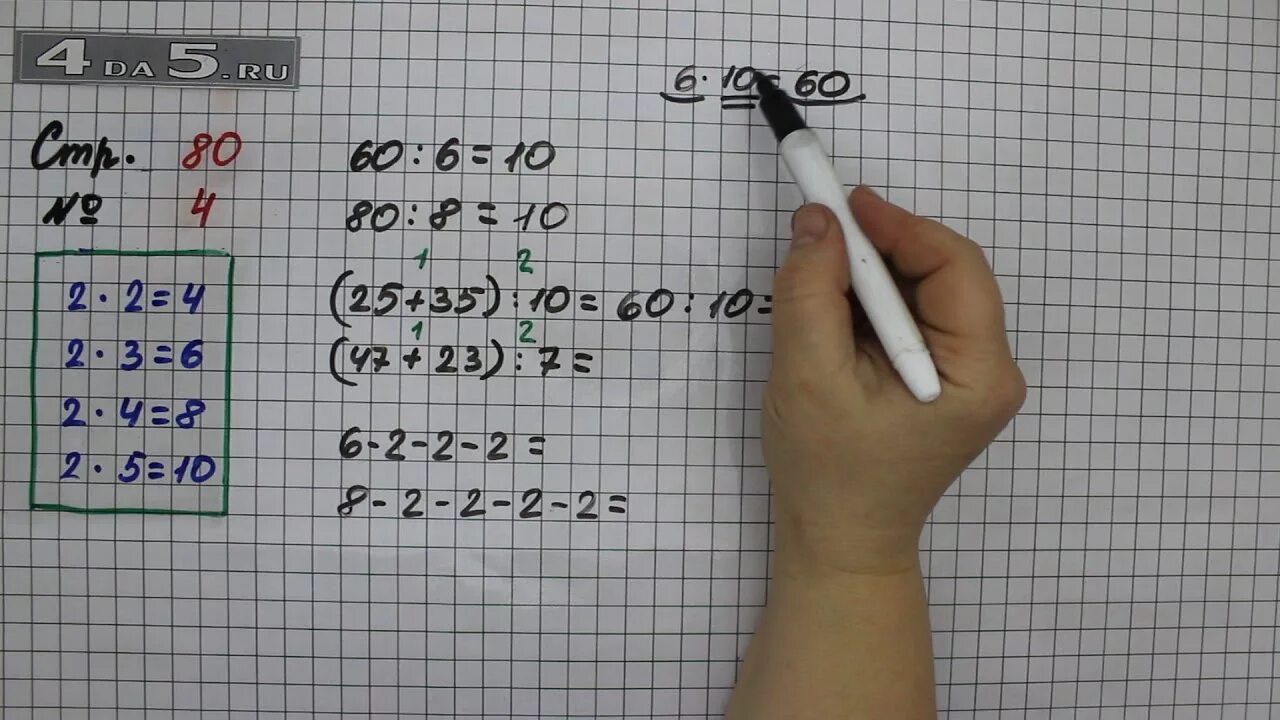 4DA5.RU
6·10=60
Стр. 80
№ 4
2·2=4
2·3=6
2·4=8
2·5=10
60:6=10
80:8=10
1 2
(25+35):10=60:10=
1 2
(47+23):7=
6-2-2-2=
8-2-2-2-2=